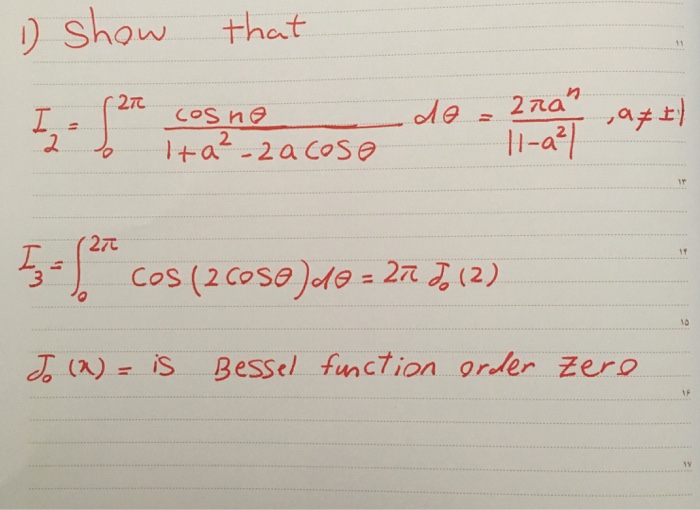 1) Show that
I₂ = ∫₀^{2π} cos nθ / (1+a² - 2a cosθ) dθ = 2πaⁿ / |1-a²| , a ≠ ±1
I₃ = ∫₀^{2π} cos(2cosθ)dθ = 2π J₀(2)
J₀(x) = is Bessel function order zero
۱۱
۱۳
۱۴
۱۵
۱۶
۱۷